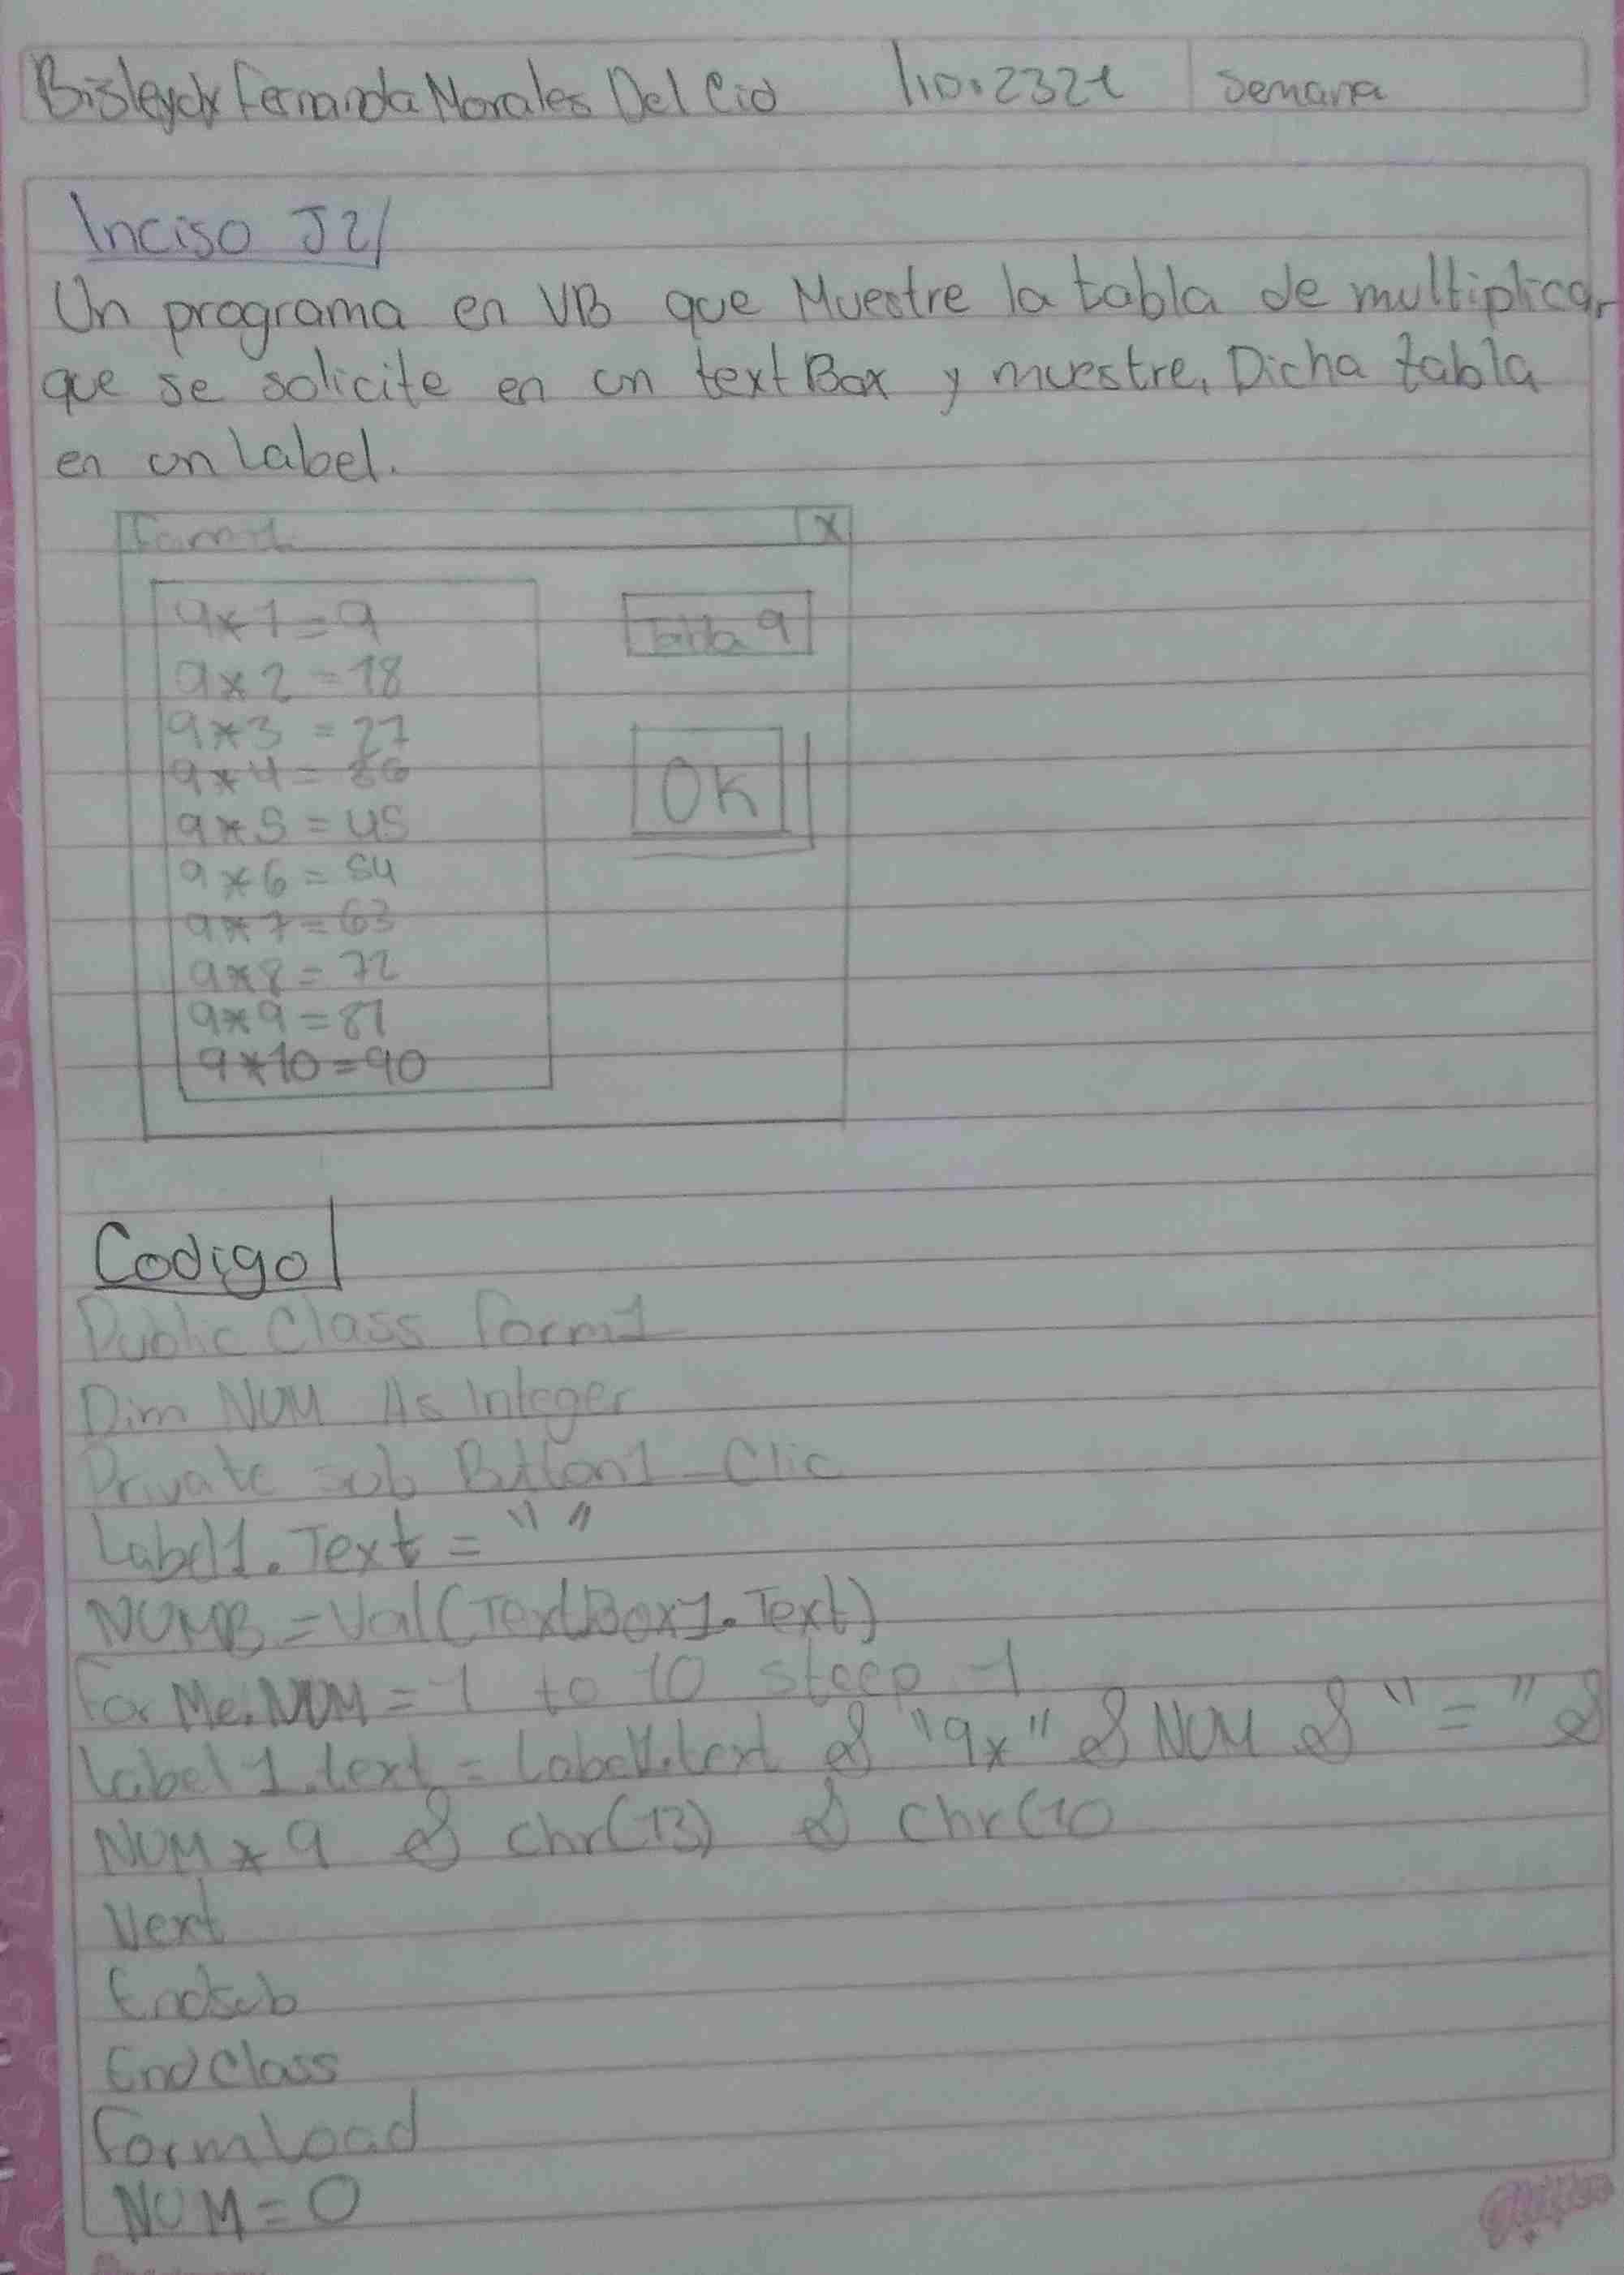 Bisleydy Fernanda Morales Del Cid No.2321 Semana
Inciso J2/
Un programa en VB que Muestre la tabla de multiplicar
que se solicite en un textBox y muestre, Dicha tabla
en un Label.
Form1 X
9*1=9
Tabla 9
9*2=18
9*3=27
9*4=36
OK
9*5=45
9*6=54
9*7=63
9*8=72
9*9=81
9*10=90
Codigo
Public Class Form1
Dim NUM As Integer
Private sub Button1_Clic
Label1.Text = " "
NUMB = Val(TextBox1.Text)
For Me.NUM = 1 to 10 steep 1
Label1.text = Label1.text & "9x" & NUM & "=" &
NUM * 9 & chr(13) & chr(10
Next
Endsub
End Class
Form Load
NUM = 0